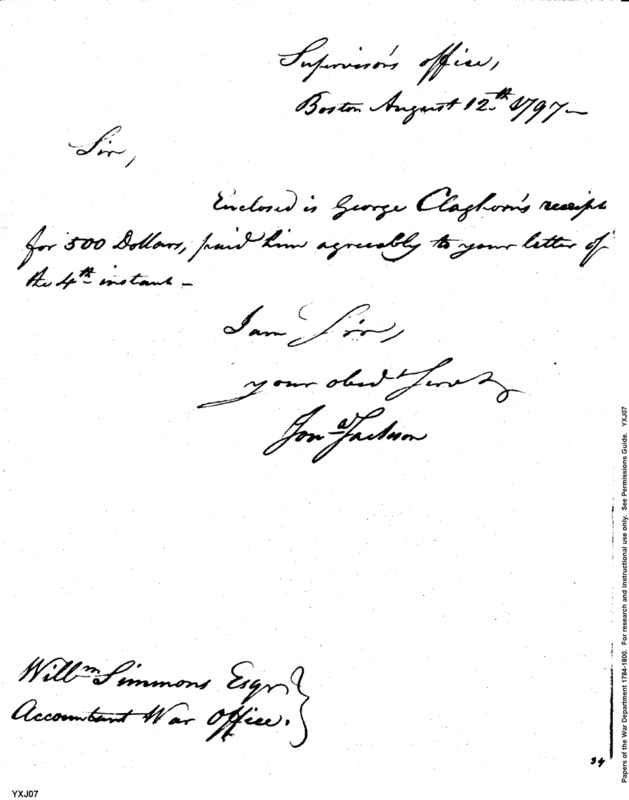 Supervisor's office,
Boston August 12th 1797-
Sir,
Enclosed is George Claghorn's receipt
for 500 Dollars, paid him agreeably to your letter of
the 4th instant-
I am Sir,
your obedt Servt
Jona Jackson
Willm Simmons Esqr.
Accountant War Office.
34
YXJ07
Papers of the War Department 1784-1800. For research and instructional use only. See Permissions Guide. YXJ07